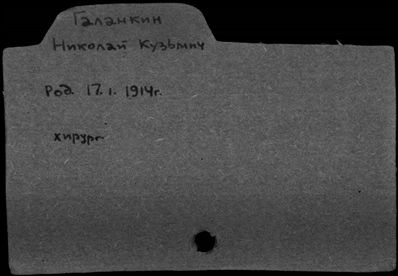 Галанкин
Николай Кузьмич
Род. 17.1. 1914г.
хирург